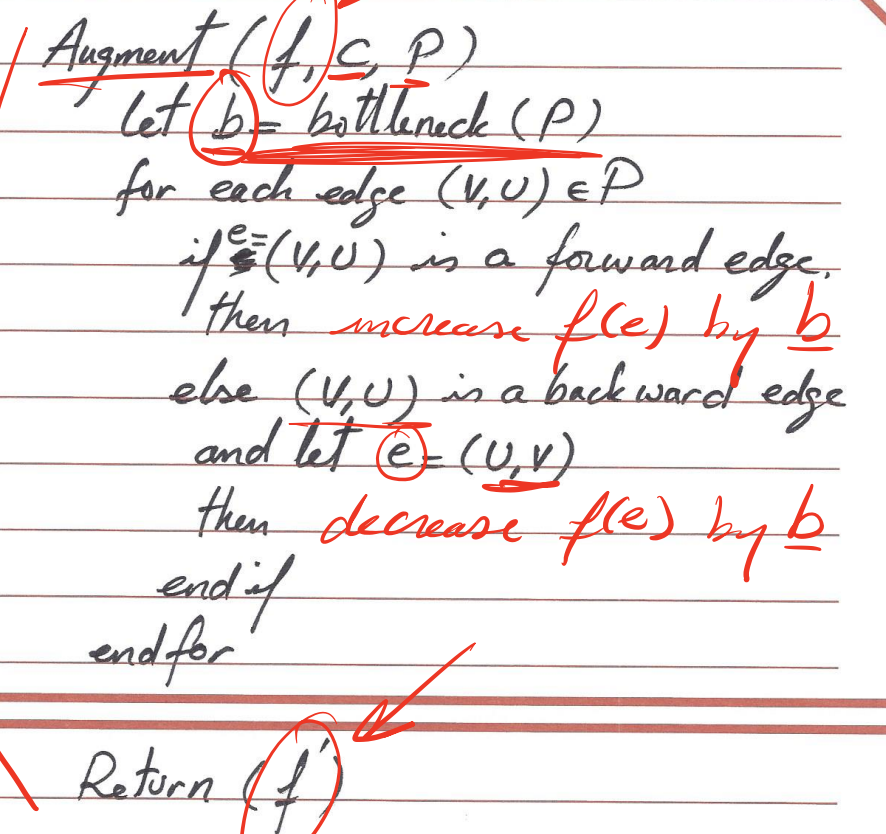 Augment (f, c, P)
Let b = bottleneck (P)
for each edge (V,U) ∈ P
if e = (V,U) is a forward edge.
then increase f(e) by b
else (V,U) is a backward edge
and let e = (U,V)
then decrease f(e) by b
endif
endfor
Return (f')